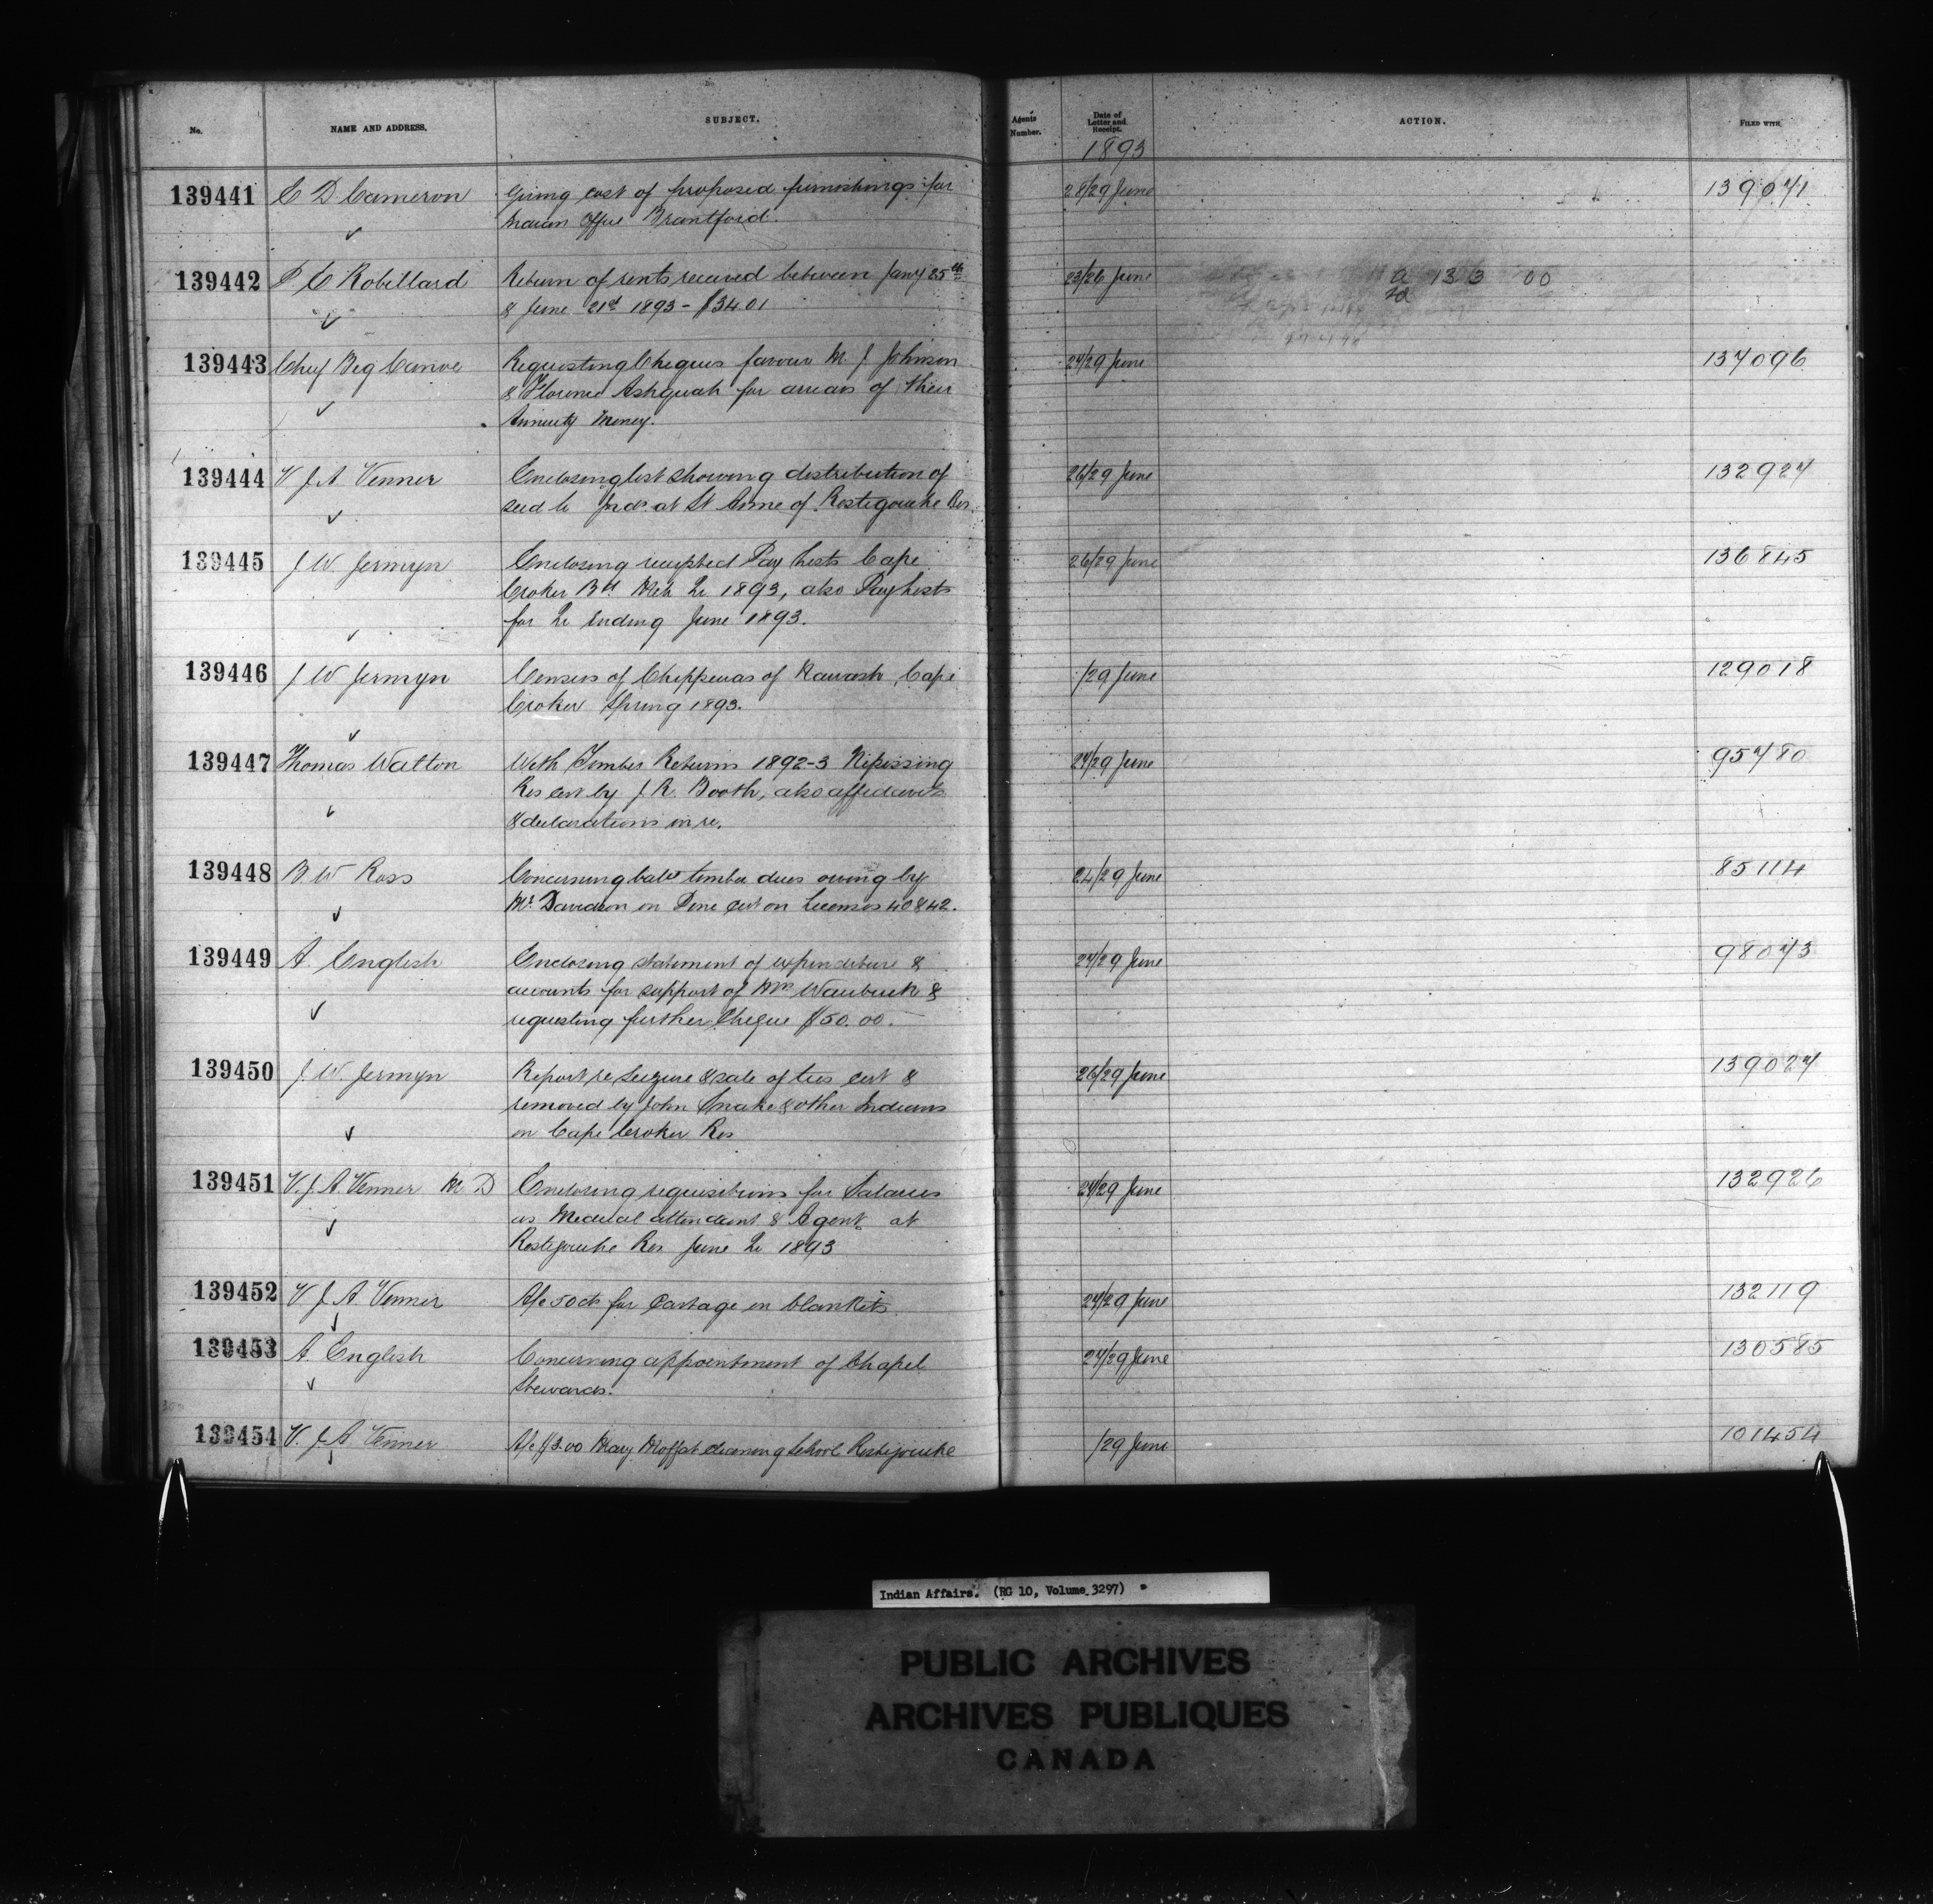 No. NAME AND ADDRESS. SUBJECT. Agents Number. Date of Letter and Receipt. ACTION. FILED WITH
1893
139441 E D Cameron Giving cost of proposed furnishings for 28/29 June 139071
Indian Office Brantford.
139442 P C Robillard Return of rents received between Jany 25th 23/26 June 133 00
& June 21st 1893 - $3401
139443 Chief Big Canoe Requesting Cheques favour M. J Johnson 27/29 June 137096
& Florence Ashquab for arrears of their
Annuity Money.
139444 V J A Venner Enclosing list showing distribution of 26/29 June 132927
seed to Inds. at St Anne of Restigouche Res.
139445 J W Jermyn Enclosing receipted Pay Lists Cape 26/29 June 136845
Croker Bd Mch Qr 1893, also Pay Lists
for Qr ending June 1893.
139446 J W Jermyn Census of Chippewas of Nawash, Cape /29 June 129018
Croker Spring 1893.
139447 Thomas Walton With Timber Returns 1892-3 Nipissing 27/29 June 95780
Res cut by J. R. Booth, also affidavits
& declarations in re.
139448 B W Ross Concerning bale timber dues owing by 24/29 June 85114
Mr Davidson on Pine cut on Licenses 40 & 42.
139449 A. English Enclosing statement of expenditure & 27/29 June 98073
accounts for support of Mrs Waubuck &
requesting further Cheque $50.00.
139450 J. W. Jermyn Report re Seizure & sale of ties cut & 26/29 June 139027
removed by John Snake & other Indians
on Cape Croker Res
139451 V. J. A. Venner M D Enclosing requisitions for Salaries 27/29 June 132926
as Medical attendant & Agent at
Restigouche Res June Qr 1893
139452 V J A. Venner A/c 50cts for Cartage on blankets. 27/29 June 132119
139453 A. English Concerning appointment of Chapel 27/29 June 130585
Stewards.
139454 V. J A Venner A/c $3.00 Mary Moffat cleaning School Restigouche /29 June 101454
Indian Affairs. (RG 10, Volume 3297)
PUBLIC ARCHIVES
ARCHIVES PUBLIQUES
CANADA